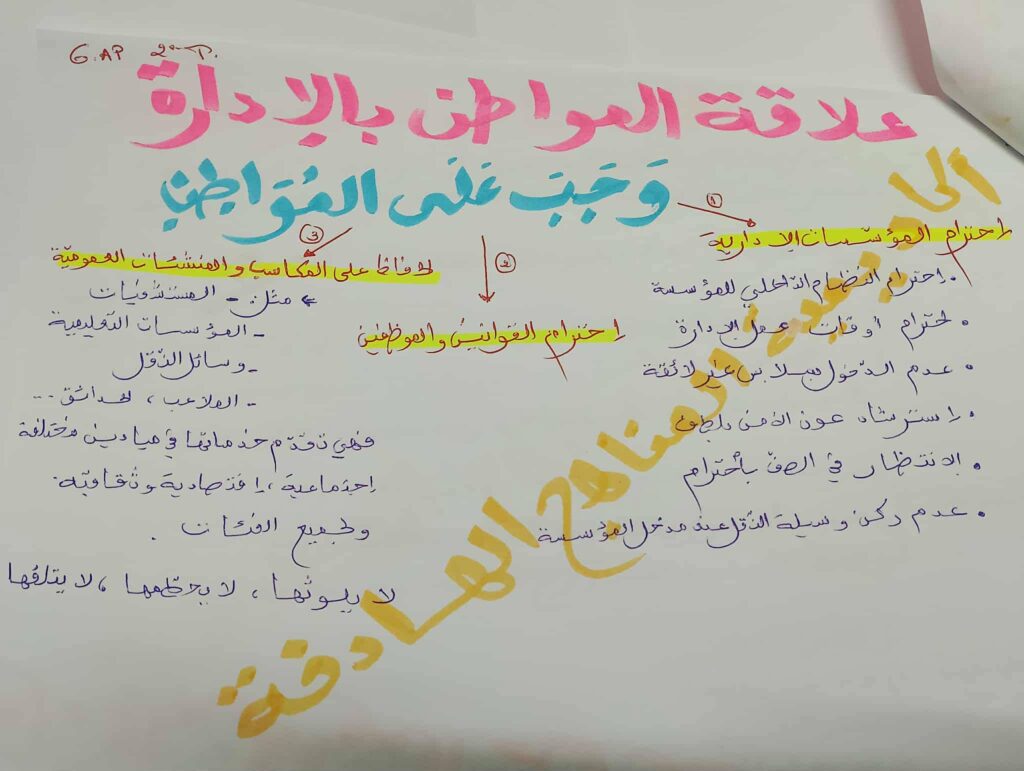 G.AP 2ᵃᵐ P.
علاقة المواطن بالإدارة
وَجَبَ عَلَى المُوَاطِنِ
①
احترام المؤسّسات الإدارية
• احترام النّظام الدّاخلي للمؤسسة
• احترام أوقات عمل الإدارة
• عدم الدّخول بملابس غير لائقة
• استرشاد عون الأمن بلطف
• الانتظار في الصفّ بأحترام
• عدم ركن وسيلة النّقل عند مدخل المؤسسة
②
احترام القوانين والموظفين
③
الحفاظ على المكاسب والمنشئات العموميّة
مثل - المستشفيات
- المؤسسات التّعليمية
- وسائل النّقل
- الملاعب ، الحدائق ...
فهي تقدّم خدماتها في ميادين مختلفة
اجتماعية ، اقتصادية وثقافيّة.
ولجميع الفئات .
لا يلوثها ، لا يحطّمها ، لا يتلفها
المناهج الهادفة